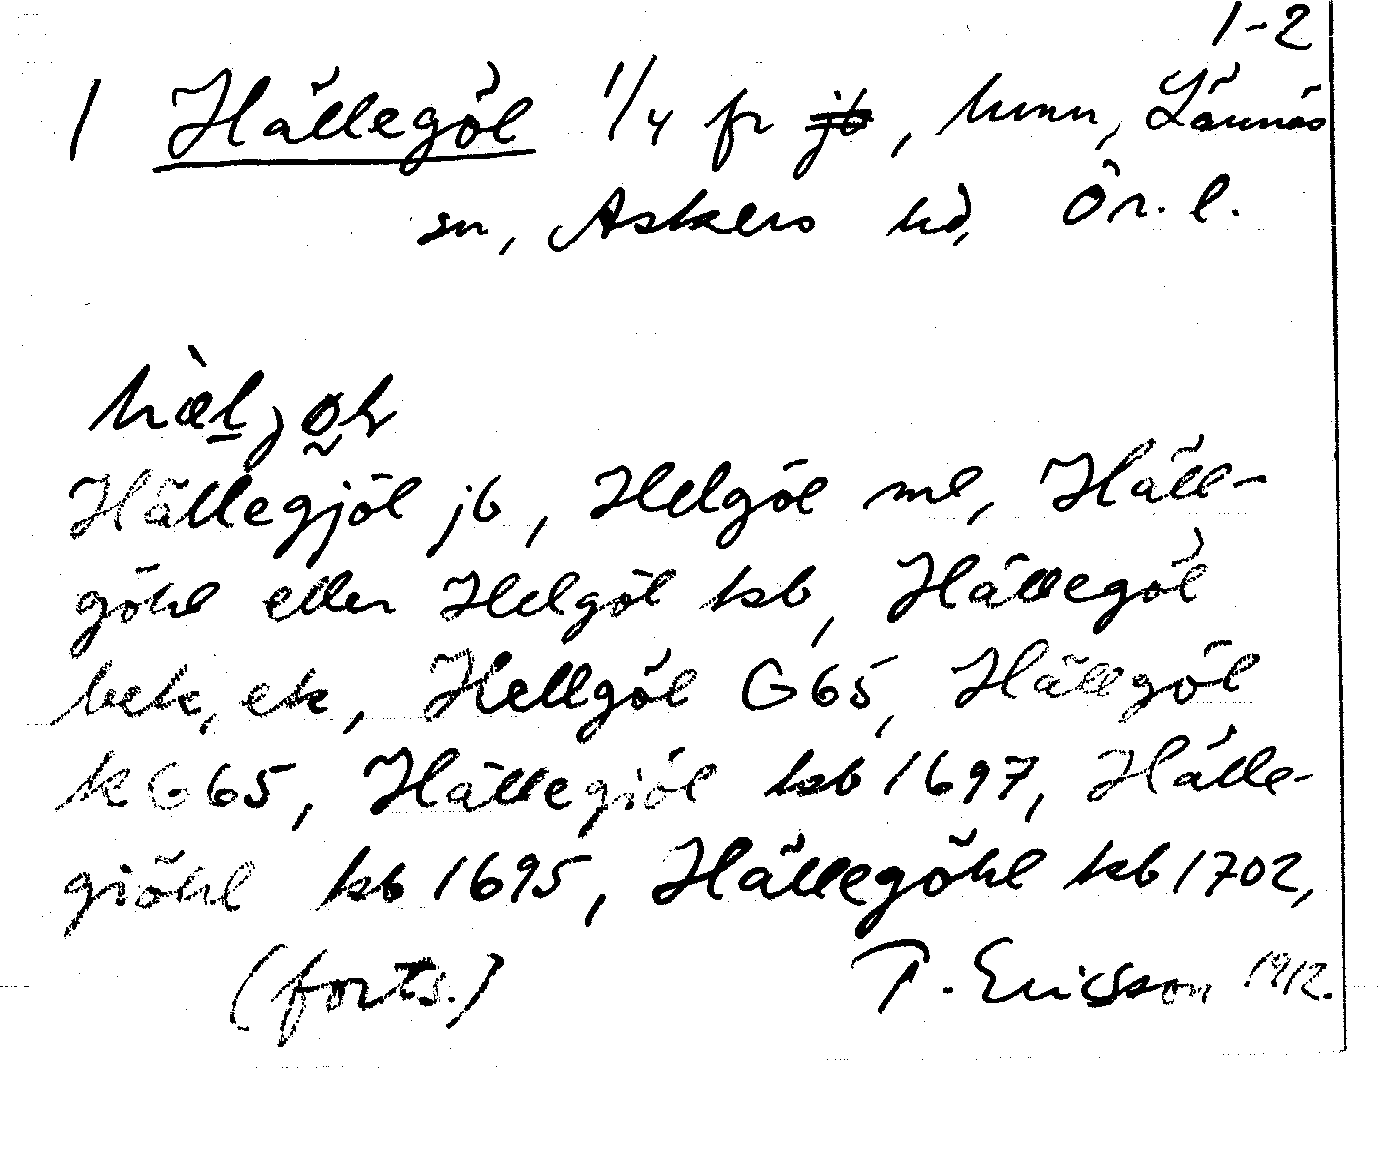 1-2
1 Hällegöl 1/4 fr jb, hmn, Lännäs
sn, Askers hd, Ör. l.
Hällegjöl jb, Helgöl ml, Häll-
göhl eller Helgöl kb, Hällegöl
bek, ek, Hellgöl G65, Hällgöl
k G65, Hällegiöl kb 1697, Hälle-
giöhl kb 1695, Hällegöhl kb 1702,
(forts.) T. Ericsson 1912.